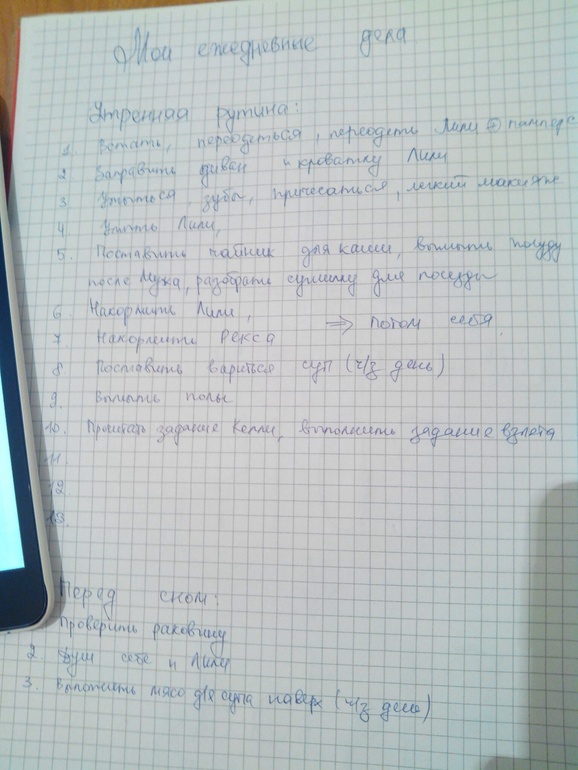 Мои ежедневные дела
Утренная рутина:
1 Встать, переодеться, переодеть Лили + памперс
2 Заправить диван и кроватку Лили
3 Умыться зубы, причесаться, легкий макияж
4 Умыть Лили,
5. Поставить чайник для каши, вымыть посуду
после Мужа, разобрать сушилку для посуды
6 Накормить Лили,
7 Накормить Рекса ⇒ потом себя.
8 Поставить вариться суп (ч/з день)
9. Вымыть полы
10. Прочитать задание Келли, выполнить задание взлёта
11.
12.
13.
Перед сном:
Проверить раковину
2 Душ себе и Лили
3. Выложить мясо для супа наверх (ч/з день)